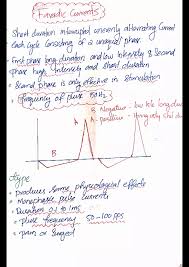 Faradic Currents
* Short duration interrupted unevenly alternating current
each cycle consisting of 2 unequal phase
* First phase long duration and low intensity & second
phase high intensity and short duration
* Second phase is only effective in stimulation
frequency of pulse 50 Hz
Negative - low long
positive - short
Type
* produces same physiological effects
* Monophasic pulse currents
* Duration 0.1 to 1ms
* pulse frequency 50-100 PPS
* or surged